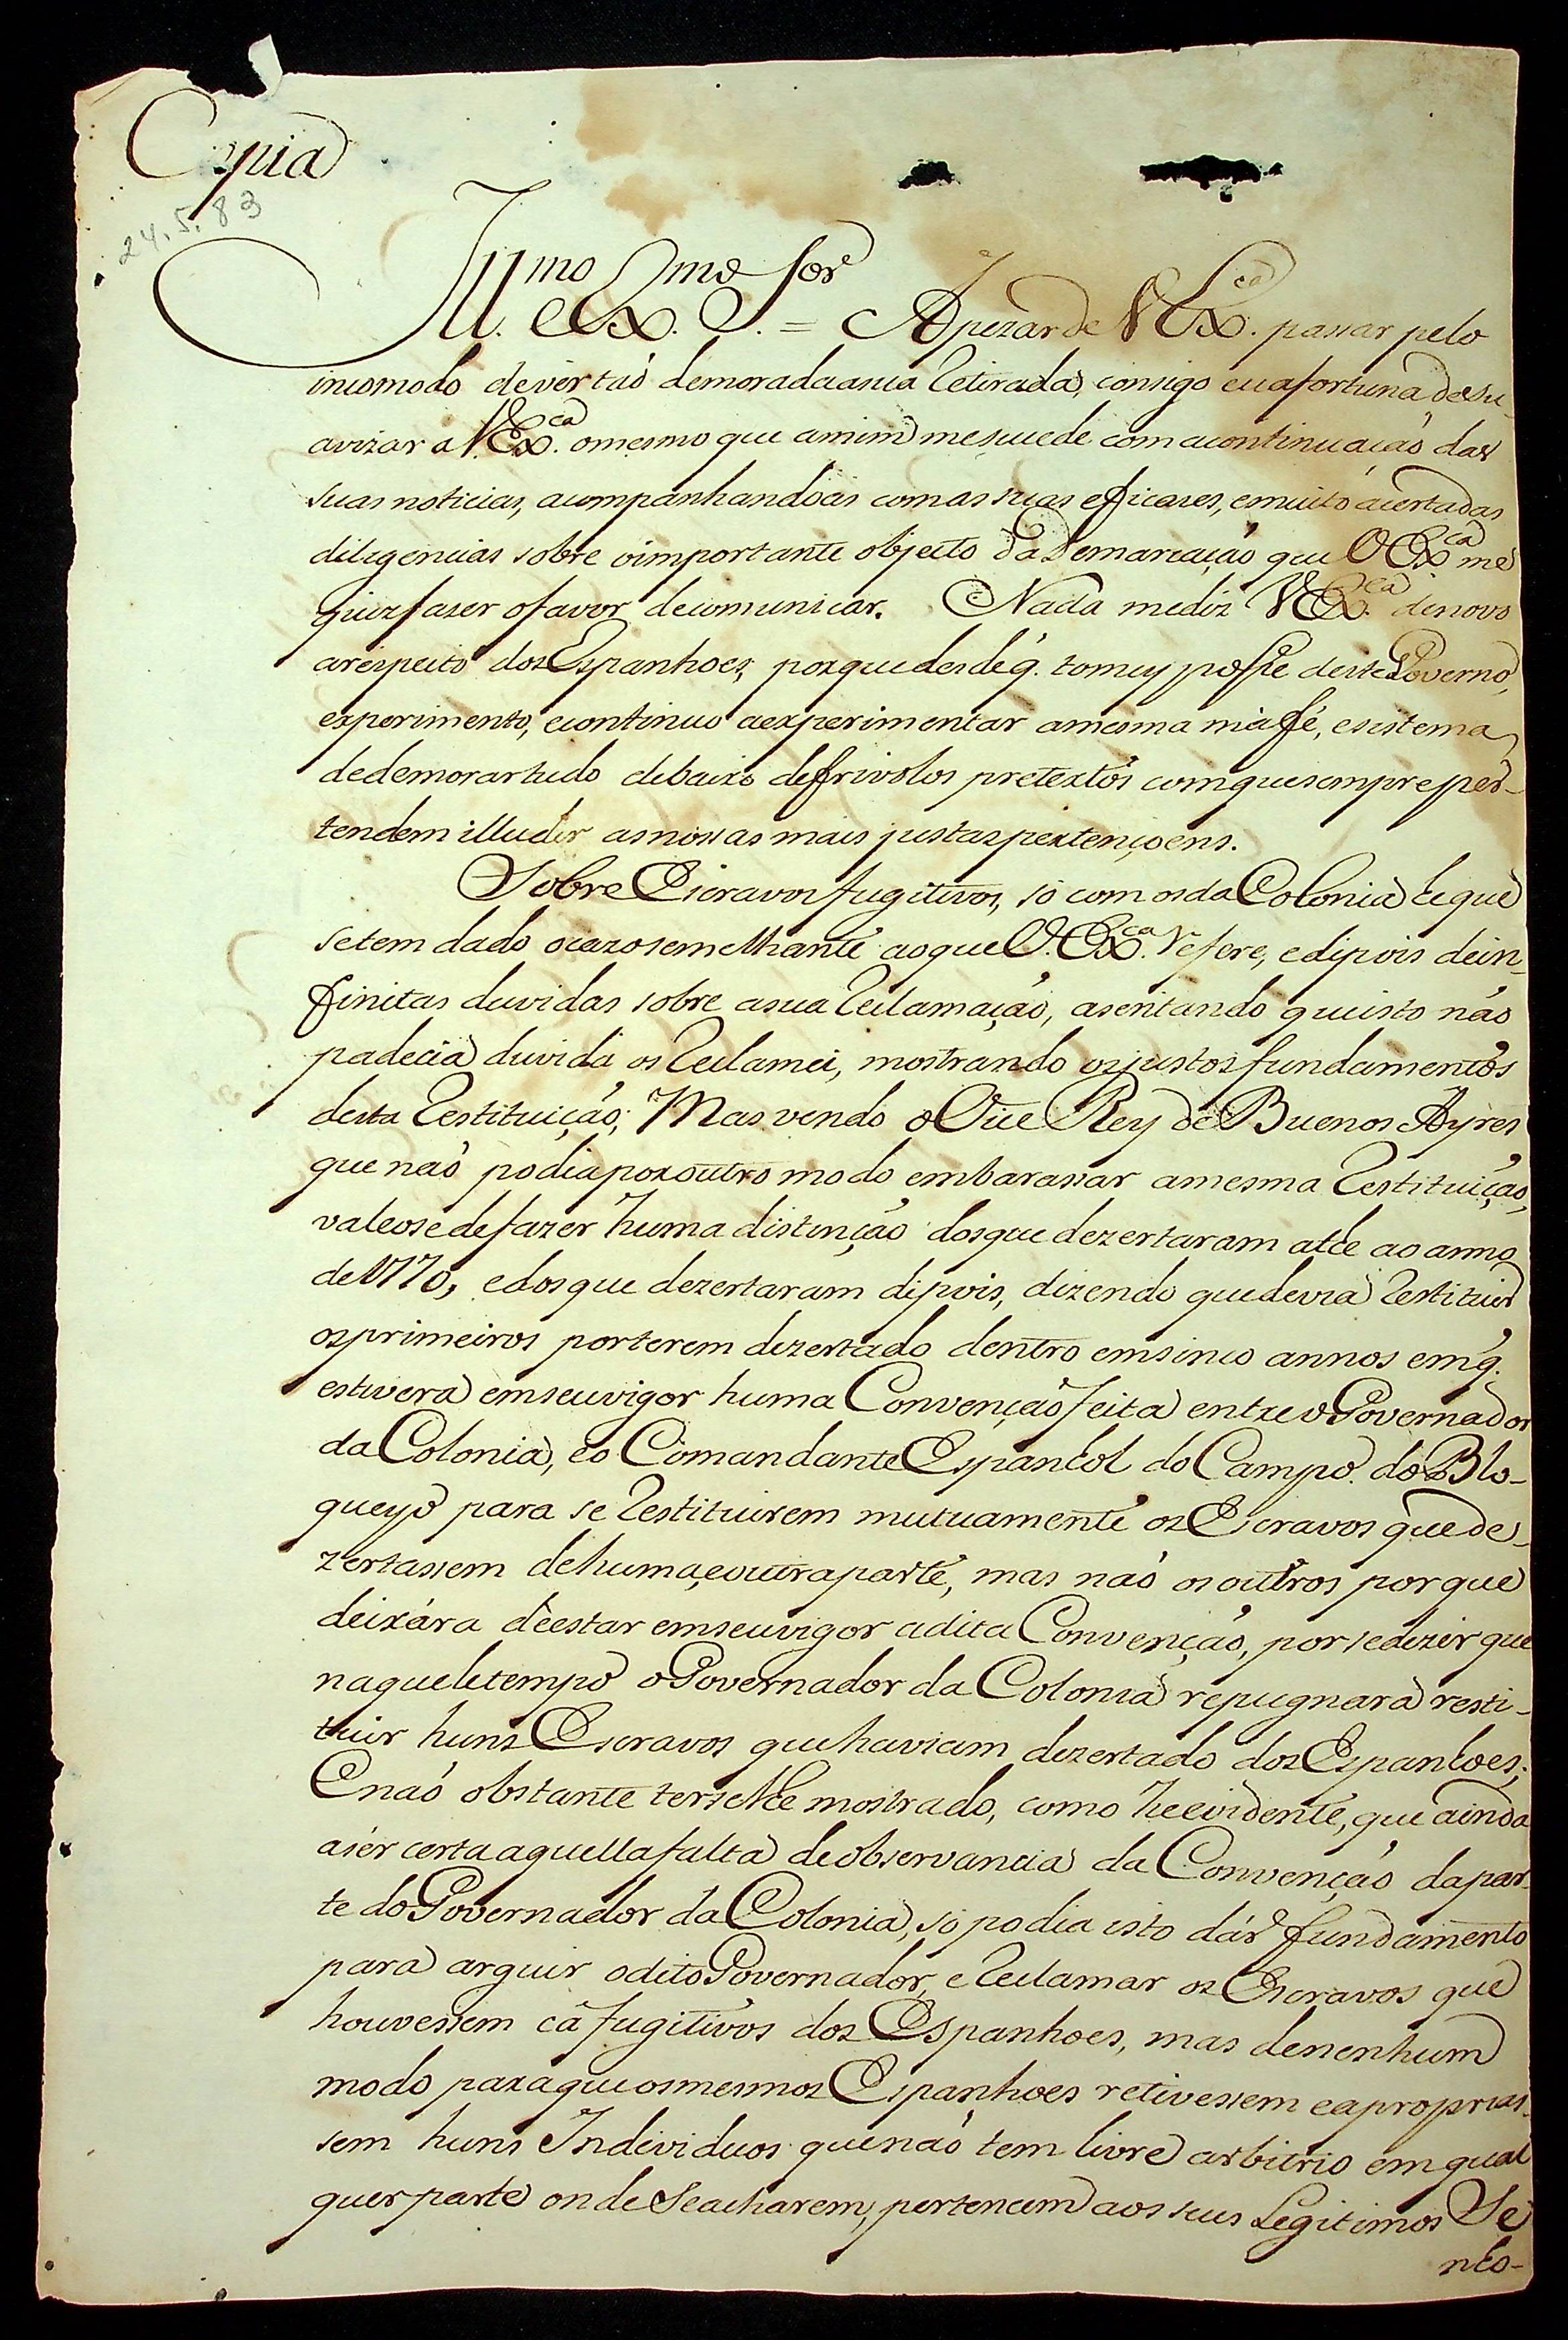 Copia
24.5.83
Ill.mo e Ex.mo S.or = Apezar de V Ex.ca passar pelo
incomodo de vêr taõ demorada a sua Retirada, consigo eu a fortuna de su-
avizar a V.Ex.ca o mesmo que a mim me sucede com a continuaçaõ das
suas noticias, acompanhandoas com as suas eficases, e muito acertadas
diligencias sobre o importante objecto da Demarcaçaõ que V Ex.ca me
quiz faser o favor de comunicar. Nada me diz V Ex.ca de novo
a respeito dos Espanhoes, porque desde q. tomey posse deste Governo,
experimento, e continuo a experimentar a mesma má fé, e sistema
de demorar tudo debaixo de frivolos pretextos com que sempre per-
tendem illudir as nossas mais justas pertençoens.
Sobre Escravos fugitivos, só com os da Colonia he que
se tem dado o cazo semelhante ao que V.Ex.ca Refere, e dipois de in-
finitas duvidas sobre a sua Reclamaçaõ, asentando que isto naõ
padecia duvida os Reclamei, mostrando os justos fundamentos
desta Restituiçaõ; Mas vendo o Vice Rey de Buenos Ayres
que naõ podia por outro modo embarassar a mesma Restituiçaõ,
valeose de fazer huma distinçaõ dos que dezertaram athe ao anno
de 1770, e dos que dezertaram dipois, dizendo que devia Restituir
os primeiros por terem dezertado dentro em sinco annos em q.
estivera em seu vigor huma Convençaõ feita entre o Governador
da Colonia, e o Comandante Espanhol do Campo do Blo-
queyo para se Restituirem mutuamente os Escravos que de-
zertassem de huma, e outra parte, mas naõ os outros porque
deixára de estar em seu vigor a dita Convençaõ, por se dizer que
naquele tempo o Governador da Colonia repugnara resti-
tuir huns Escravos que haviam dezertado dos Espanhoes;
E naõ obstante terselhe mostrado, como he evidente, que ainda
a sêr certa aquella falta de observancia da Convençaõ da par-
te do Governador da Colonia, só podia isto dár fundamento
para arguir o dito Governador, e Reclamar os Escravos que
houvessem cá fugitivos dos Espanhoes, mas de nenhum
modo para que os mesmos Espanhoes retivessem e apropriar-
sem huns Individuos que naõ tem livre arbitrio em qual
quer parte onde se acharem, pertencem aos seus Legitimos Se
nho-